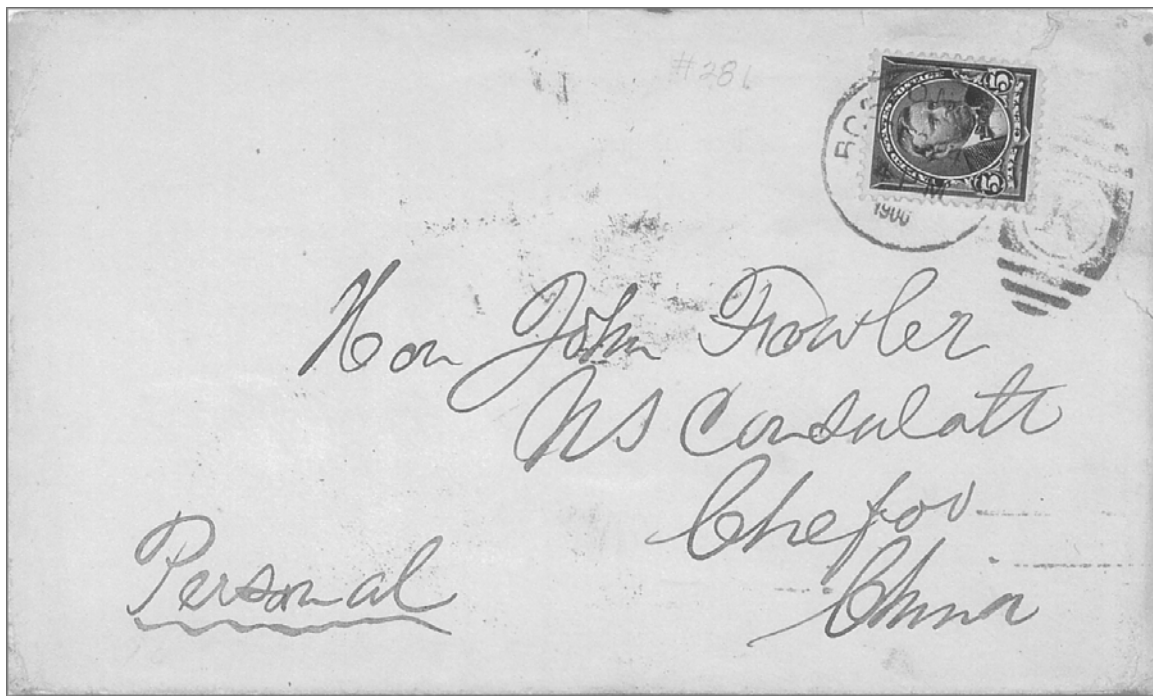 #281
1900
5 5
Hon John Fowler
US Consulate
Chefoo
China
Personal